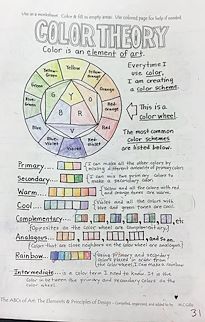 Use as a worksheet. Color & fill in empty areas. Use colored page for help if needed.
COLOR THEORY
Color is an element of art.
Yellow
Yellow-Green
Yellow-Orange
Green
Orange
Blue-Green
Red-Orange
Blue
Red
Violet
G Y O
B R
V
Everytime I
use color,
I am creating
a color scheme.
This is a
color wheel.
The most common
color schemes
are listed below.
Primary
I can make all the other colors by
mixing different amounts of primary colors.
Secondary
I can mix two primary colors to
make a secondary color.
Warm
Yellow and all the colors with red
and orange tones are warm.
Cool
Violet and all the colors with
blue and green tones are cool.
Complementary etc.
(Opposites on the color wheel are complementary)
Analogous and so on.
(Colors that are close neighbors on the color wheel are analogous)
Rainbow
Using primary and secondary
colors placed in order from
the color wheel, I can make a rainbow.
Intermediate is a color term I need to know. It is the
color in between the primary and secondary colors on the
color wheel.
The ABCs of Art: The Elements & Principles of Design - Compiled, organized, and added to by
31